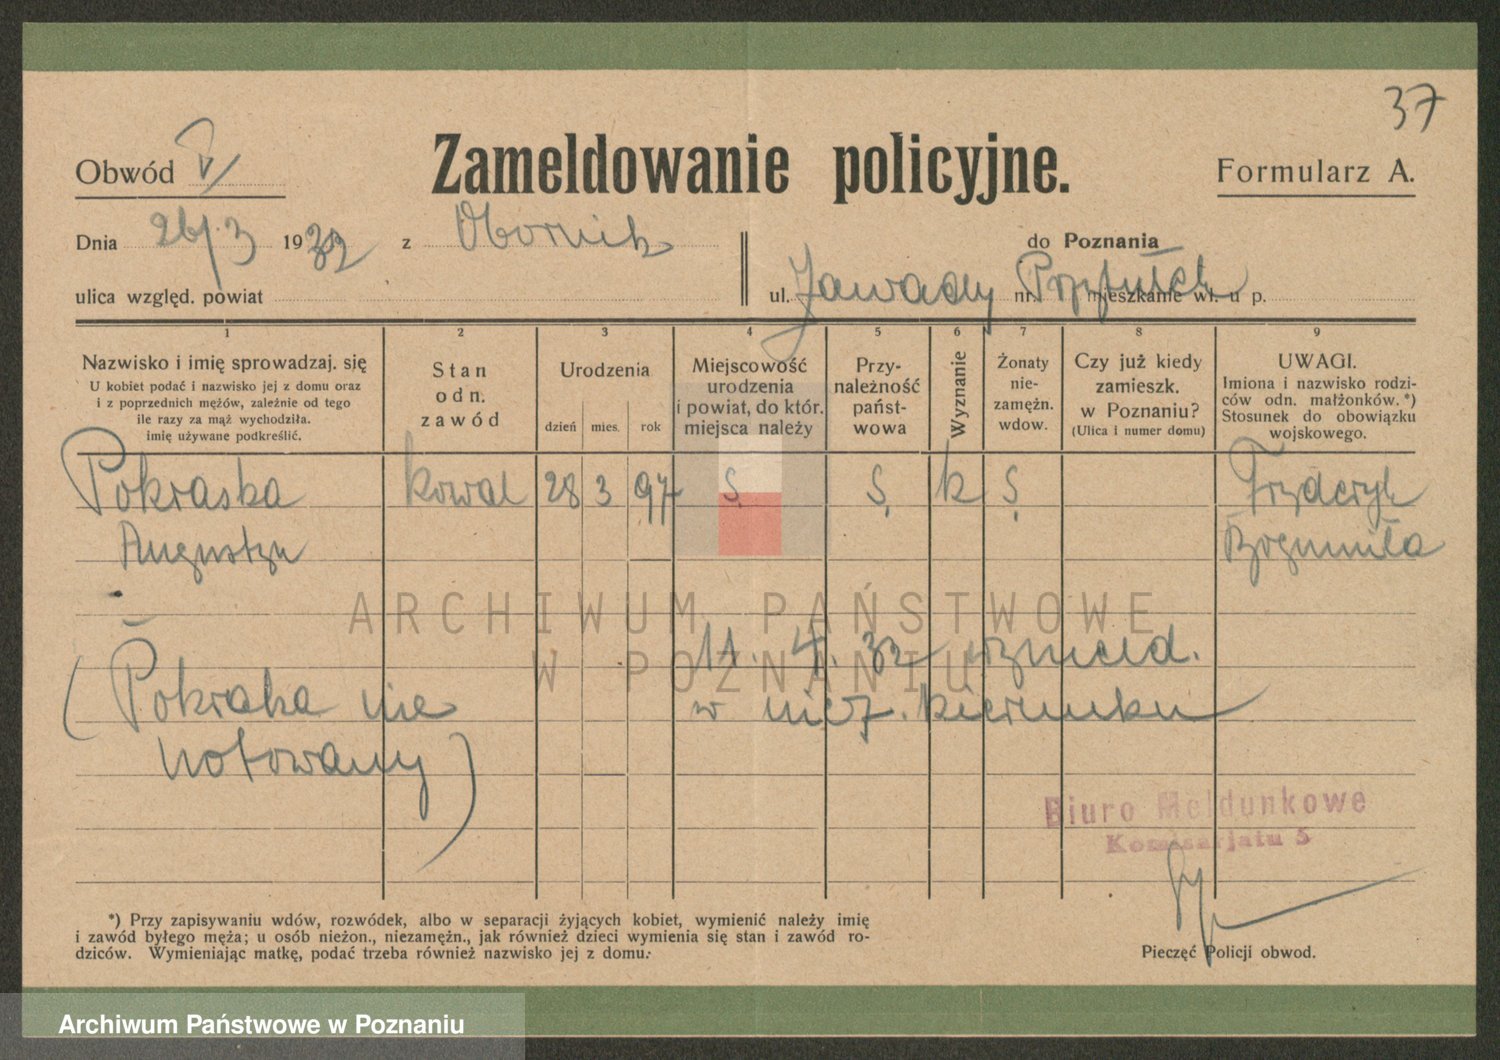 37
Zameldowanie policyjne.
Obwód V/
Formularz A.
Dnia 26/3 1932 z Obornik
do Poznania
ulica względ. powiat
ul. Zawady nr. Przytułek mieszkanie wł. u p.
1 2 3 4 5 6 7 8 9
Nazwisko i imię sprowadzaj. się
U kobiet podać i nazwisko jej z domu oraz
i z poprzednich mężów, zależnie od tego
ile razy za mąż wychodziła.
imię używane podkreślić.
Stan
odn.
zawód
Urodzenia
dzień mies. rok
Miejscowość
urodzenia
i powiat, do któr.
miejsca należy
Przy-
należność
państ-
wowa
Wyznanie
Żonaty
nie-
zamężn.
wdow.
Czy już kiedy
zamieszk.
w Poznaniu?
(Ulica i numer domu)
UWAGI.
Imiona i nazwisko rodzi-
ców odn. małżonków. *)
Stosunek do obowiązku
wojskowego.
Pokraska kowal 28 3 97 S. S. k S. Fryderyk
Augustyn Bogumiła
ARCHIWUM PAŃSTWOWE
W POZNANIU
11. 4. 32 wymeld.
(Pokraka nie w niez. kierunku
notowany)
Biuro Meldunkowe
Komisarjatu 5
*) Przy zapisywaniu wdów, rozwódek, albo w separacji żyjących kobiet, wymienić należy imię
i zawód byłego męża; u osób nieżon., niezamężn., jak również dzieci wymienia się stan i zawód ro-
dziców. Wymieniając matkę, podać trzeba również nazwisko jej z domu.
Pieczęć Policji obwod.
Archiwum Państwowe w Poznaniu